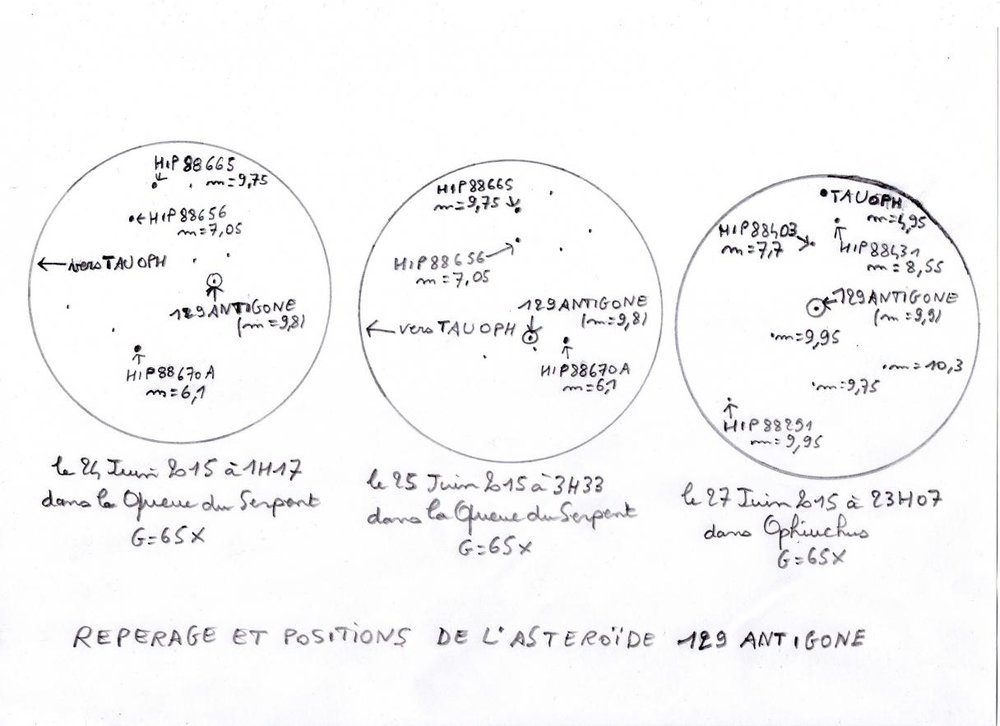 HIP88665
m=9,75
HIP88656
m=7,05
vers TAUOPH
129 ANTIGONE
(m=9,8)
HIP88670A
m=6,1
le 24 Juin 2015 à 1H17
dans la Queue du Serpent
G=65X
HIP88665
m=9,75
HIP88656
m=7,05
129 ANTIGONE
(m=9,8)
vers TAUOPH
HIP88670A
m=6,1
le 25 Juin 2015 à 3H33
dans la Queue du Serpent
G=65X
TAUOPH
m=4,95
HIP88403
m=7,7
HIP88431
m=8,55
129 ANTIGONE
(m=9,9)
m=9,95
m=10,3
m=9,75
HIP88291
m=9,95
le 27 Juin 2015 à 23H07
dans Ophiuchus
G=65X
REPERAGE ET POSITIONS DE L'ASTEROÏDE 129 ANTIGONE